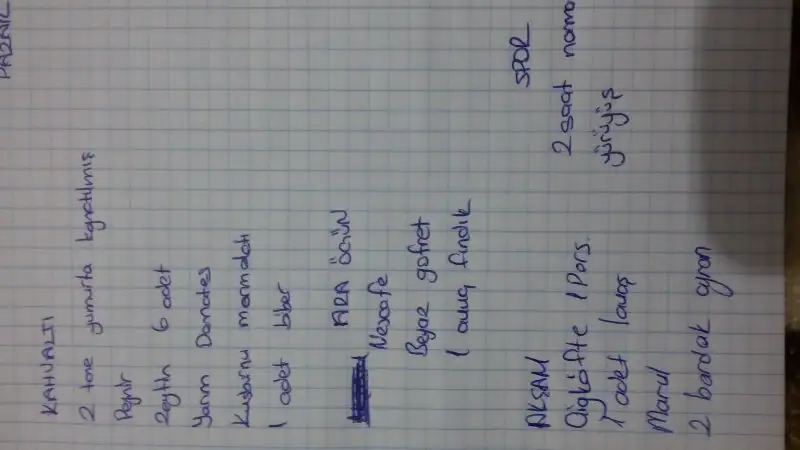 PAZAR
KAHVALTI
2 tane yumurta kaynatılmış
Peynir
Zeytin 6 adet
Yarım Domates
Kuşburnu marmaladı
1 adet biber
ARA ÖĞÜN
Nescafe
Beyaz gofret
1 avuç fındık
AKŞAM
Çiğköfte 1 Pors.
1 adet lavaş
Marul
2 bardak ayran
SPOR
2 saat
yürüyüş